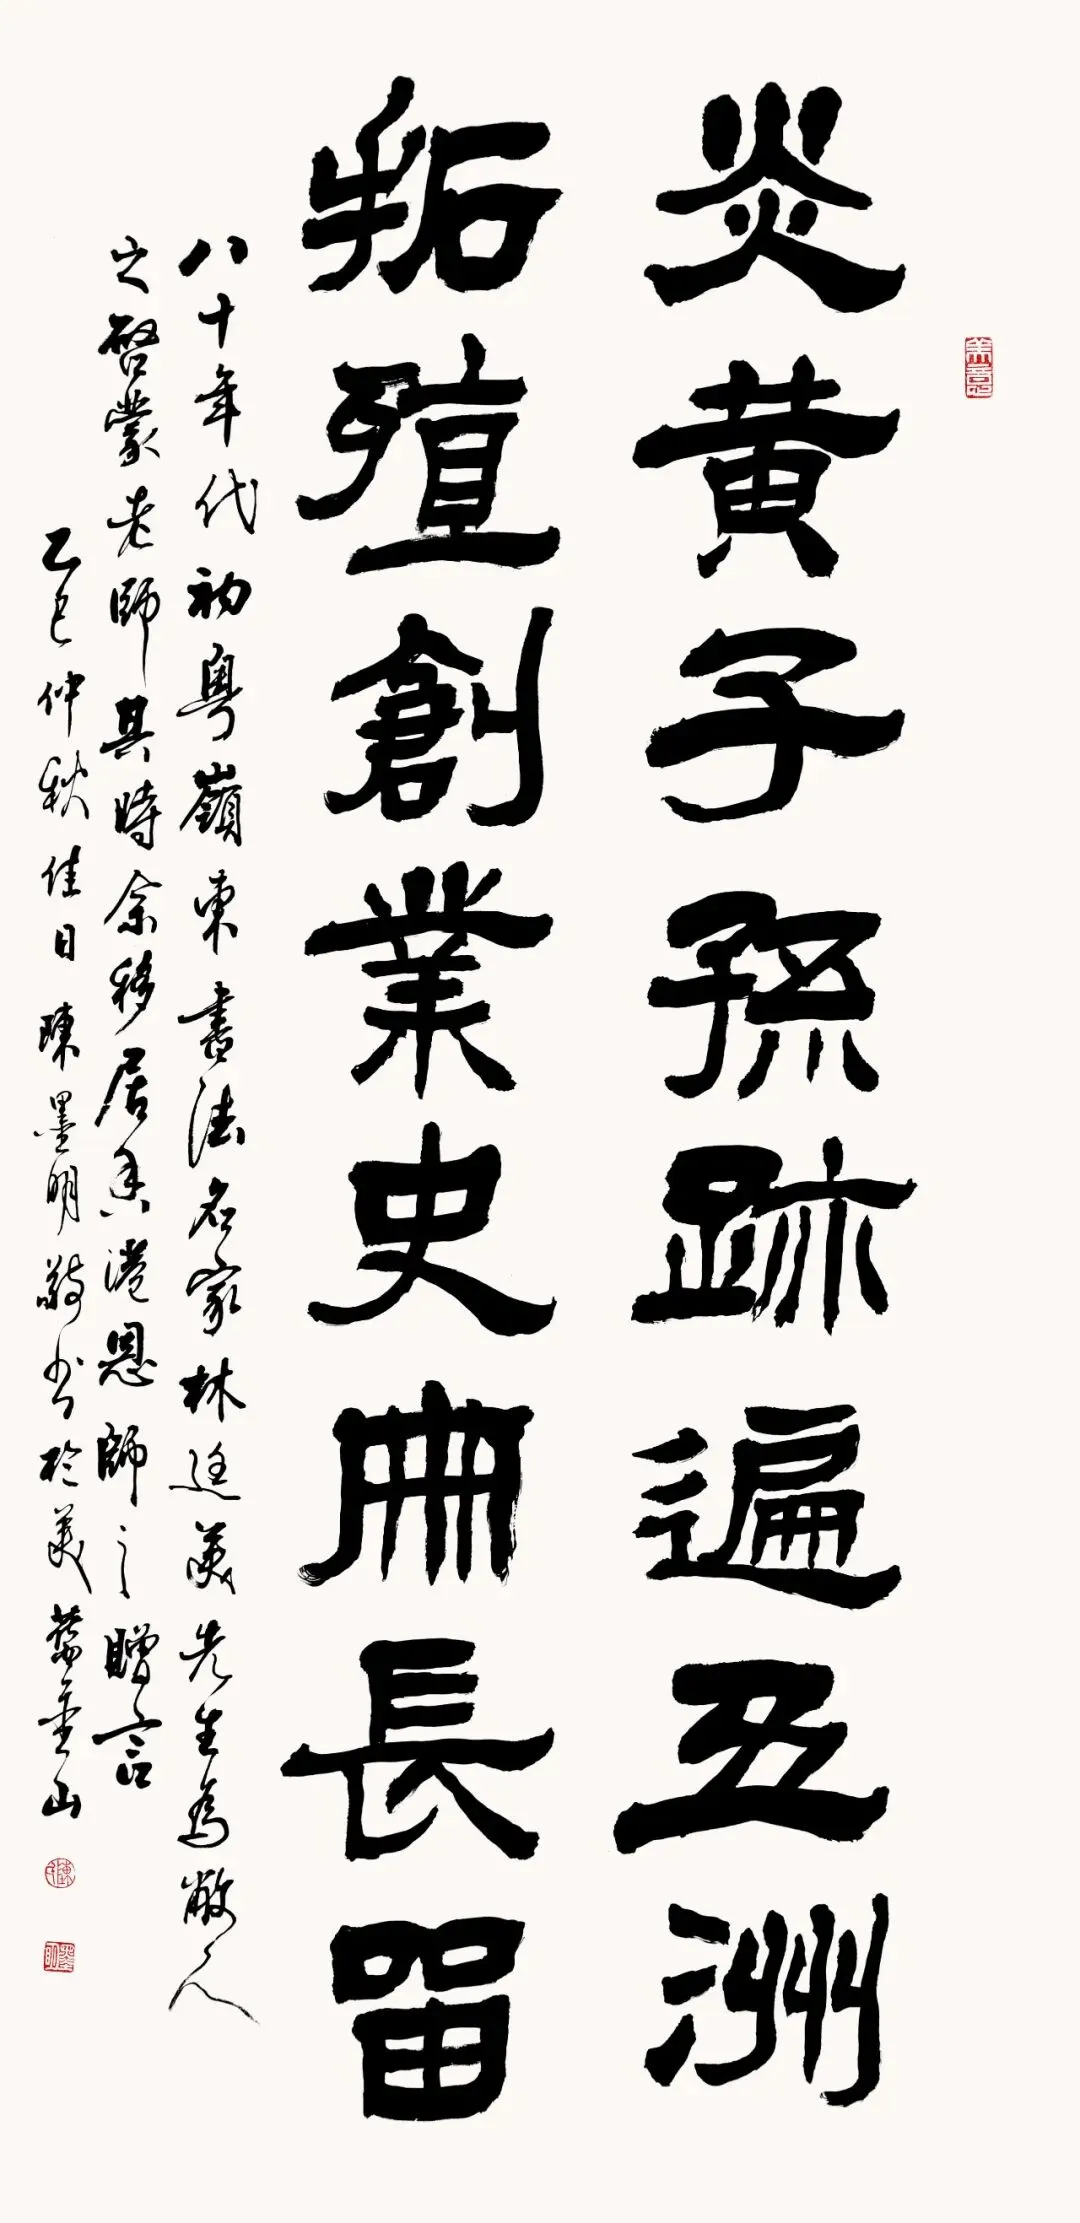 炎黄子孫跡遍五洲
拓殖創業史册長留
八十年代初粤嶺東書法名家林廷美先生為敝人
之啓蒙老師其時余移居香港恩師之贈言
乙巳仲秋佳日陳墨明敬书於美舊金山